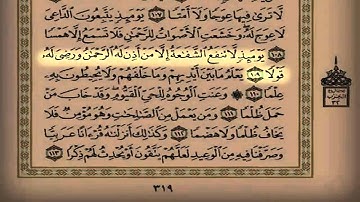 لَّا تَرَىٰ فِيهَا عِوَجًا وَلَآ أَمْتًا ١٠٧ يَوْمَئِذٍ يَتَّبِعُونَ ٱلدَّاعِىَ
لَا عِوَجَ لَهُۥ وَخَشَعَتِ ٱلْأَصْوَاتُ لِلرَّحْمَٰنِ فَلَا تَسْمَعُ إِلَّا هَمْسًا
١٠٨ يَوْمَئِذٍ لَّا تَنفَعُ ٱلشَّفَٰعَةُ إِلَّا مَنْ أَذِنَ لَهُ ٱلرَّحْمَٰنُ وَرَضِىَ لَهُۥ
قَوْلًا ١٠٩ يَعْلَمُ مَا بَيْنَ أَيْدِيهِمْ وَمَا خَلْفَهُمْ وَلَا يُحِيطُونَ بِهِۦ
عِلْمًا ١١٠ وَعَنَتِ ٱلْوُجُوهُ لِلْحَىِّ ٱلْقَيُّومِ وَقَدْ خَابَ مَنْ
حَمَلَ ظُلْمًا ١١١ وَمَن يَعْمَلْ مِنَ ٱلصَّٰلِحَٰتِ وَهُوَ مُؤْمِنٌ فَلَا
يَخَافُ ظُلْمًا وَلَا هَضْمًا ١١٢ وَكَذَٰلِكَ أَنزَلْنَٰهُ قُرْءَانًا عَرَبِيًّا
وَصَرَّفْنَا فِيهِ مِنَ ٱلْوَعِيدِ لَعَلَّهُمْ يَتَّقُونَ أَوْ يُحْدِثُ لَهُمْ ذِكْرًا ١١٣
٣١٩